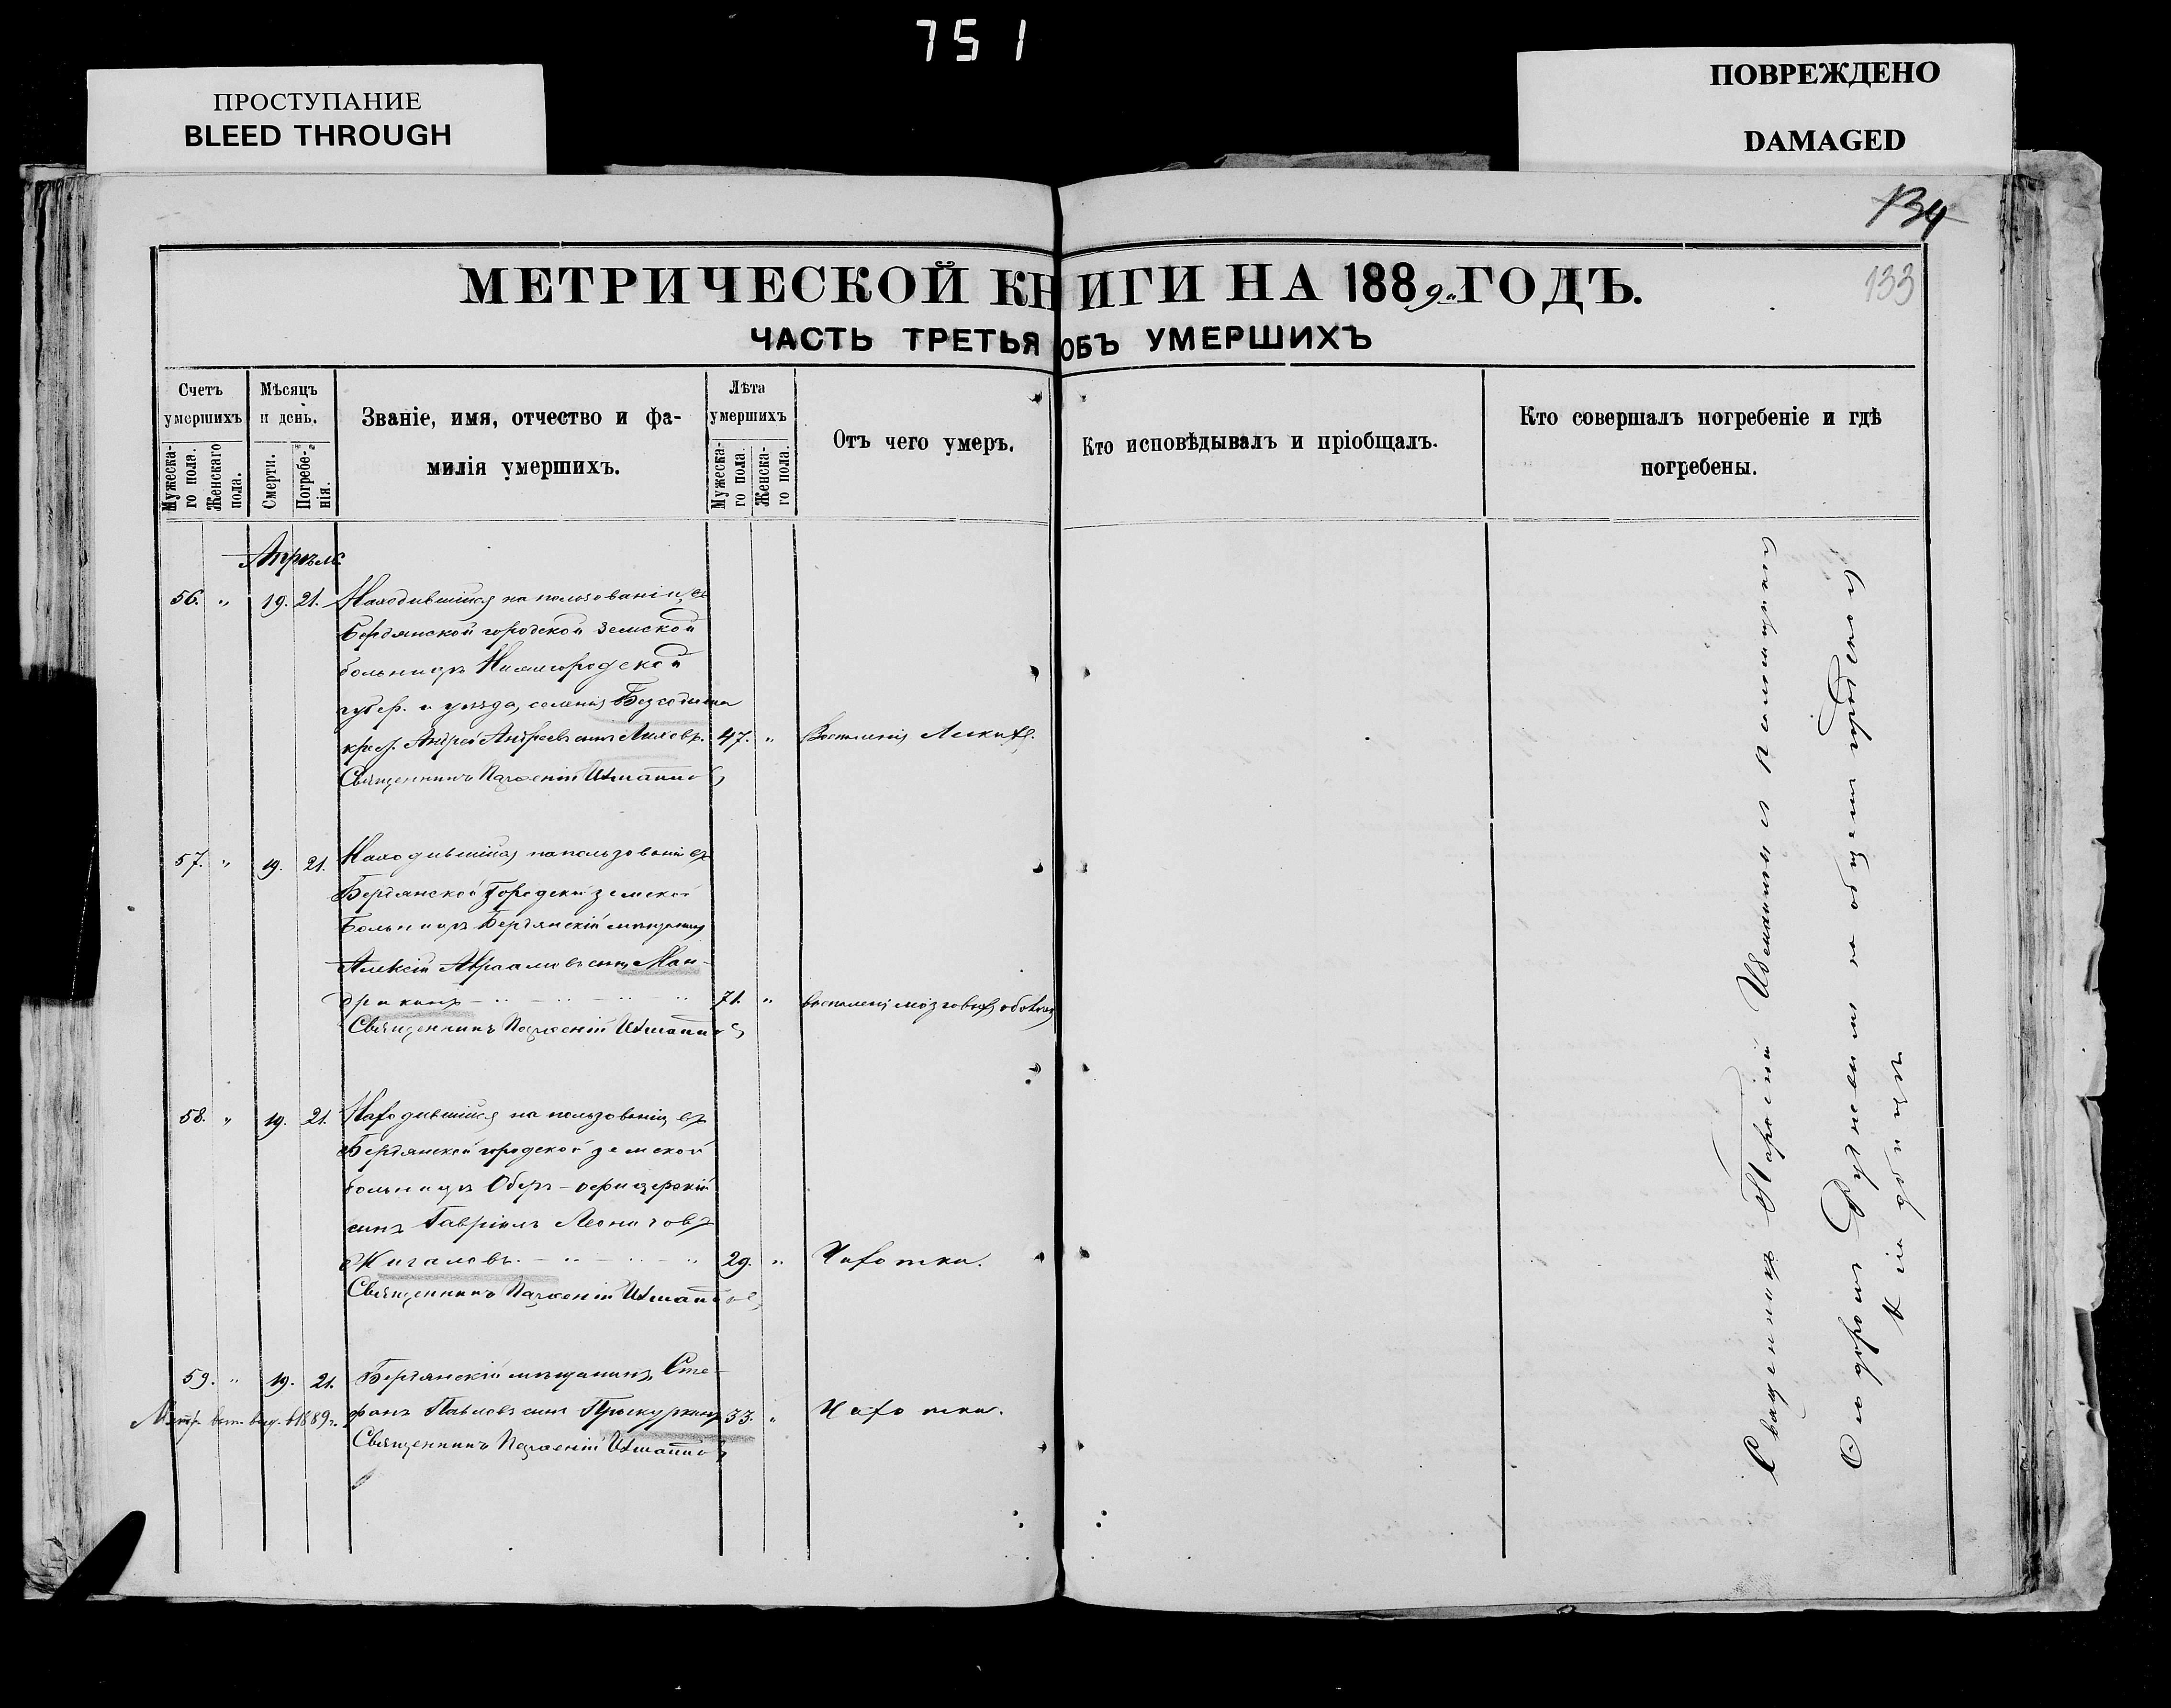 751
ПРОСТУПАНИЕ
BLEED THROUGH
ПОВРЕЖДЕНО
DAMAGED
134
133
МЕТРИЧЕСКОЙ КНИГИ НА 1889 ГОДЪ.
ЧАСТЬ ТРЕТЬЯ ОБЪ УМЕРШИХЪ
Счетъ умершихъ
Мужеска-го пола.
Женскаго пола.
Мѣсяцъ и день.
Смерти.
Погребе-нія.
Званіе, имя, отчество и фа-
милія умершихъ.
Лѣта умершихъ
Мужеска-го пола.
Женска-го пола.
Отъ чего умеръ.
Кто исповѣдывалъ и пріобщалъ.
Кто совершалъ погребеніе и гдѣ
погребены.
Апрѣль
56. " 19. 21. Находившійся на пользованіи въ
Бердянской городской земской
больницѣ Нижегородской
губер. и уѣзда, селенія
крест. Андрей Андреевъ сынъ 47. " Воспаленія Легкихъ.
Священникъ Парѳеній
57. " 19. 21. Находившійся на пользованіи въ
Бердянской Городской земской
Больницѣ Бердянскій мѣщанинъ
Алексій Авраамовъ сынъ Ман-
дрикинъ 71. " воспаленія мозговыхъ оболочекъ
Священникъ Парѳеній
58. " 19. 21. Находившійся на пользованіи въ
Бердянской городской земской
больницѣ Оберъ-офицерскій
сынъ Гавріилъ Леонтовъ
Жигаловъ. 29. " Чахотка.
Священникъ Парѳеній
59. " 19. 21. Бердянскій мѣщанинъ Сте-
фанъ Павловъ сынъ Проскуркинъ 33. " Чахотка.
Метр. выд. 1889 г.
Священникъ Парѳеній
Священникъ Парѳеній
Ѳедоромъ на общемъ городскомъ
кладбищѣ